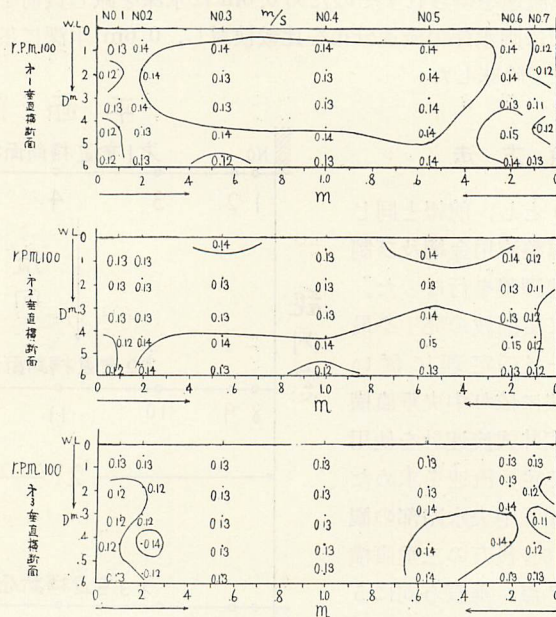 NO.1 NO.2 NO.3 m/s NO.4 NO.5 NO.6 NO.7
W.L. 0
r.p.m.100 1 0.13 0.14 0.14 0.14 0.14 0.14 0.12
才1垂直横断面
.2 0.12 0.14 0.13 0.13 0.13 0.14 0.12
Dm .3 0.13 0.14 0.13 0.13 0.14 0.13 0.11
.4 0.12 0.13 0.14 0.14 0.14 0.15 0.12
.5
.6 0.12 0.13 0.12 0.13 0.14 0.14 0.13
0 .2 .4 .6 .8 1.0 .8 .6 .4 .2 0
m
W.L. 0
r.p.m.100 1 0.13 0.13 0.14 0.13 0.14 0.13 0.12
才2垂直横断面
.2 0.13 0.13 0.13 0.13 0.13 0.13 0.11
Dm .3 0.13 0.13 0.13 0.13 0.13 0.13 0.12
.4 0.12 0.14 0.14 0.14 0.15 0.15 0.12
.5
.6 0.12 0.14 0.13 0.12 0.13 0.13 0.12
0 .2 .4 .6 .8 1.0 .8 .6 .4 .2 0
m
W.L. 0
r.p.m.100 1 0.13 0.13 0.13 0.13 0.13 0.13 0.13
才3垂直横断面
.2 0.12 0.12 0.13 0.13 0.13 0.13 0.12
Dm .3 0.12 0.12 0.13 0.13 0.13 0.14 0.11
.4 0.12 0.14 0.13 0.13 0.14 0.14 0.12
.5 0.13
.6 0.13 0.12 0.13 0.13 0.14 0.13 0.13
0 .2 .4 .6 .8 1.0 .8 .6 .4 .2 0
m